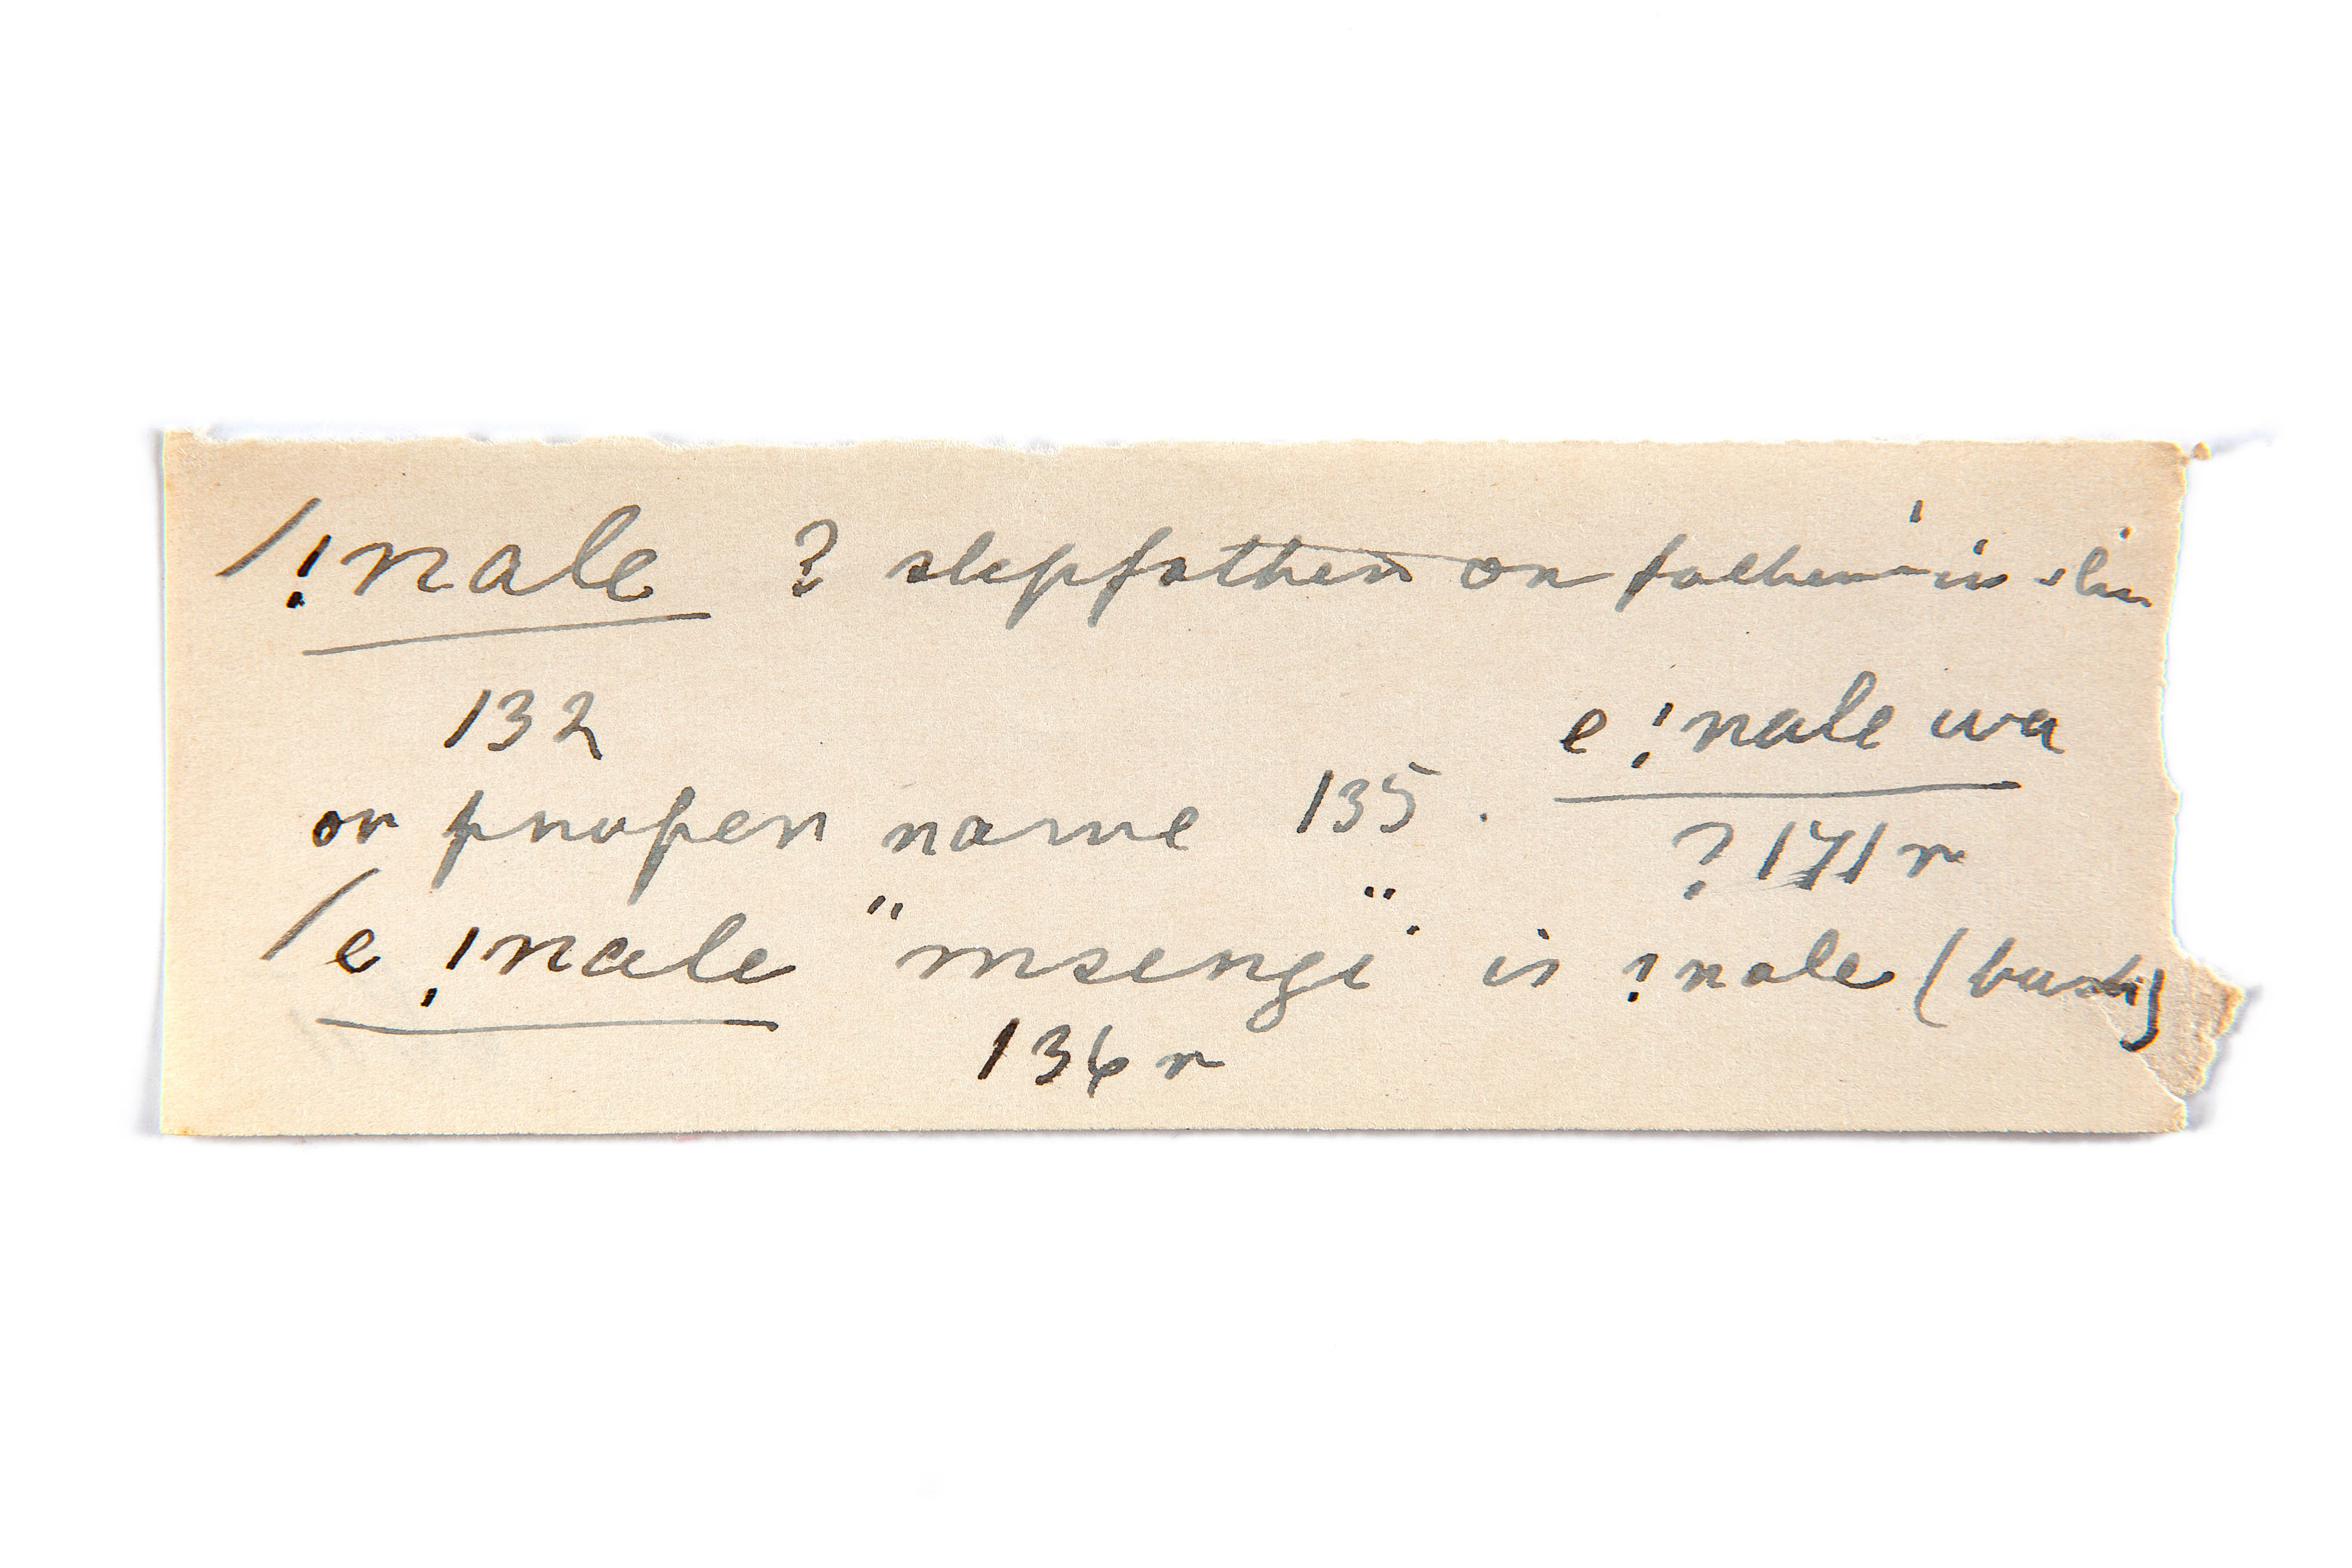 /!nale ? stepfather or father-in-law
132
e !nale wa
or proper name 135.
? 171r
/e !nale "msengi" is !nale (bush)
136r